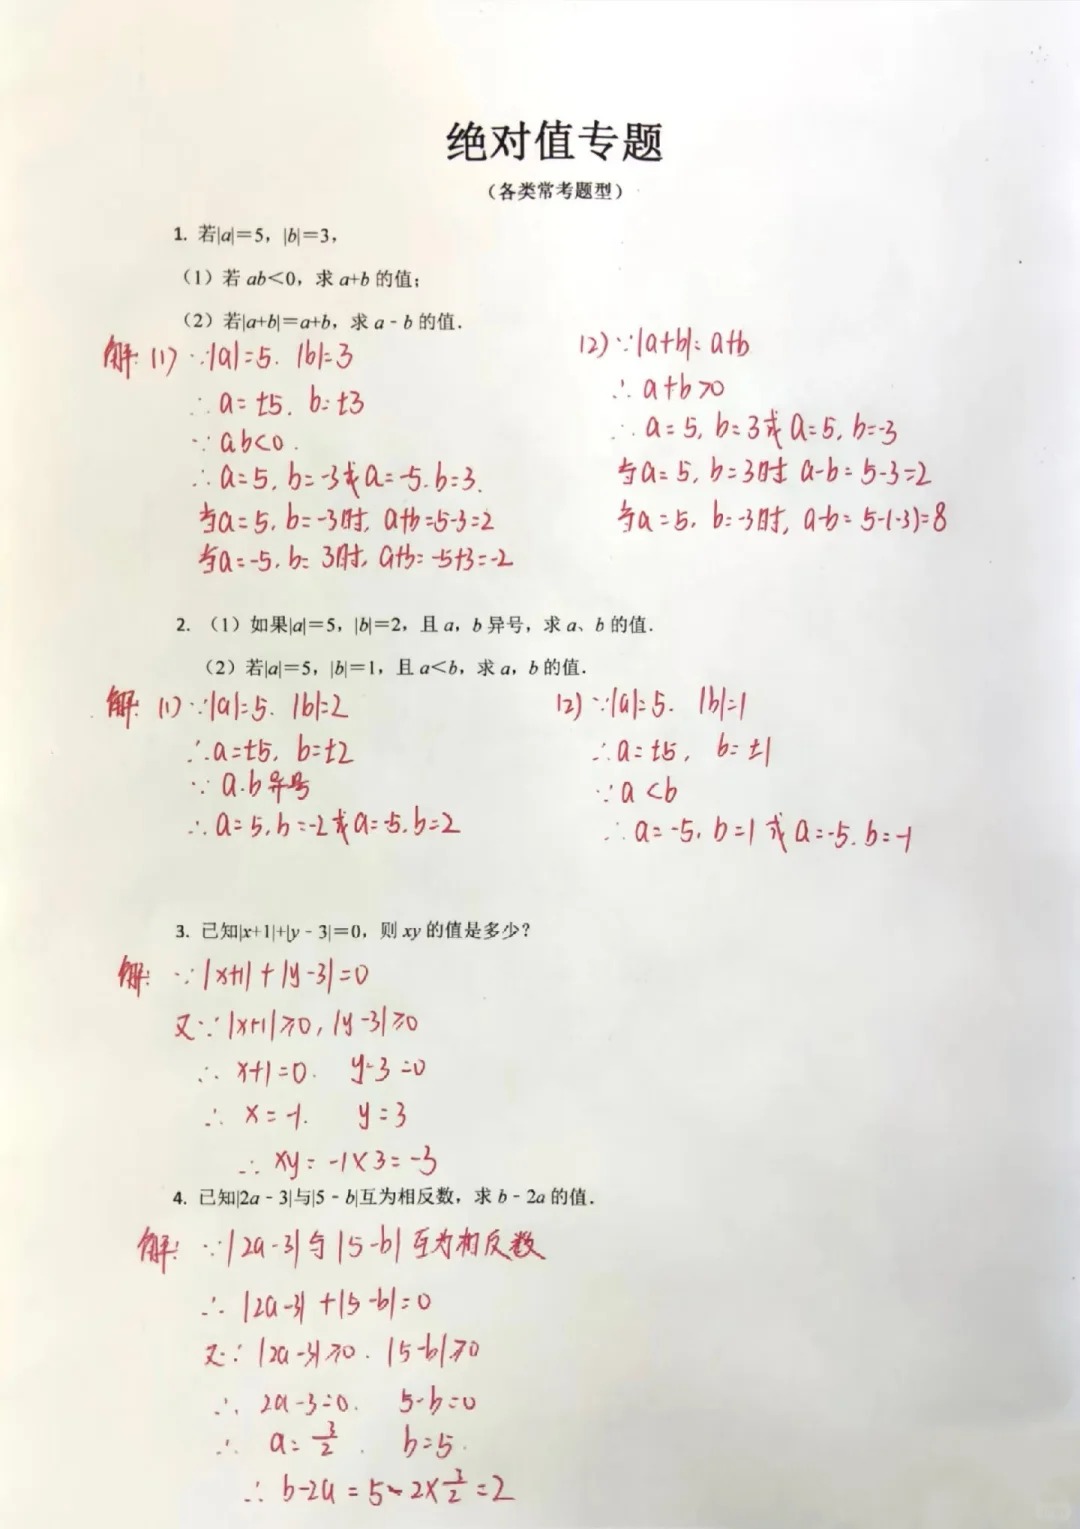 绝对值专题
（各类常考题型）
1. 若|a|＝5，|b|＝3，
（1）若 ab＜0，求 a+b 的值；
（2）若|a+b|＝a+b，求 a﹣b 的值．
解：(1) ∵|a|=5. |b|=3
∴a=±5. b=±3
∵ab<0.
∴a=5, b=-3或a=-5.b=3.
当a=5, b=-3时, a+b=5-3=2
当a=-5, b=3时, a+b=-5+3=-2
(2) ∵|a+b|=a+b
∴a+b>0
∴a=5, b=3或a=5, b=-3
当a=5, b=3时 a-b=5-3=2
当a=5, b=-3时, a-b=5-(-3)=8
2. （1）如果|a|＝5，|b|＝2，且 a，b 异号，求 a、b 的值．
（2）若|a|＝5，|b|＝1，且 a＜b，求 a，b 的值．
解：(1) ∵|a|=5. |b|=2
∴a=±5, b=±2
∵a.b异号
∴a=5,b=-2或a=-5.b=2
(2) ∵|a|=5. |b|=1
∴a=±5, b=±1
∵a<b
∴a=-5, b=1或a=-5. b=-1
3. 已知|x+1|+|y﹣3|＝0，则 xy 的值是多少？
解：∵|x+1|+|y-3|=0
又∵|x+1|⩾0, |y-3|⩾0
∴x+1=0. y-3=0
∴x=-1. y=3
∴xy=-1×3=-3
4. 已知|2a﹣3|与|5﹣b|互为相反数，求 b﹣2a 的值．
解：∵|2a-3|与|5-b|互为相反数
∴|2a-3|+|5-b|=0
又∵|2a-3|⩾0. |5-b|⩾0
∴2a-3=0. 5-b=0
∴a=3/2. b=5.
∴b-2a=5-2×3/2=2